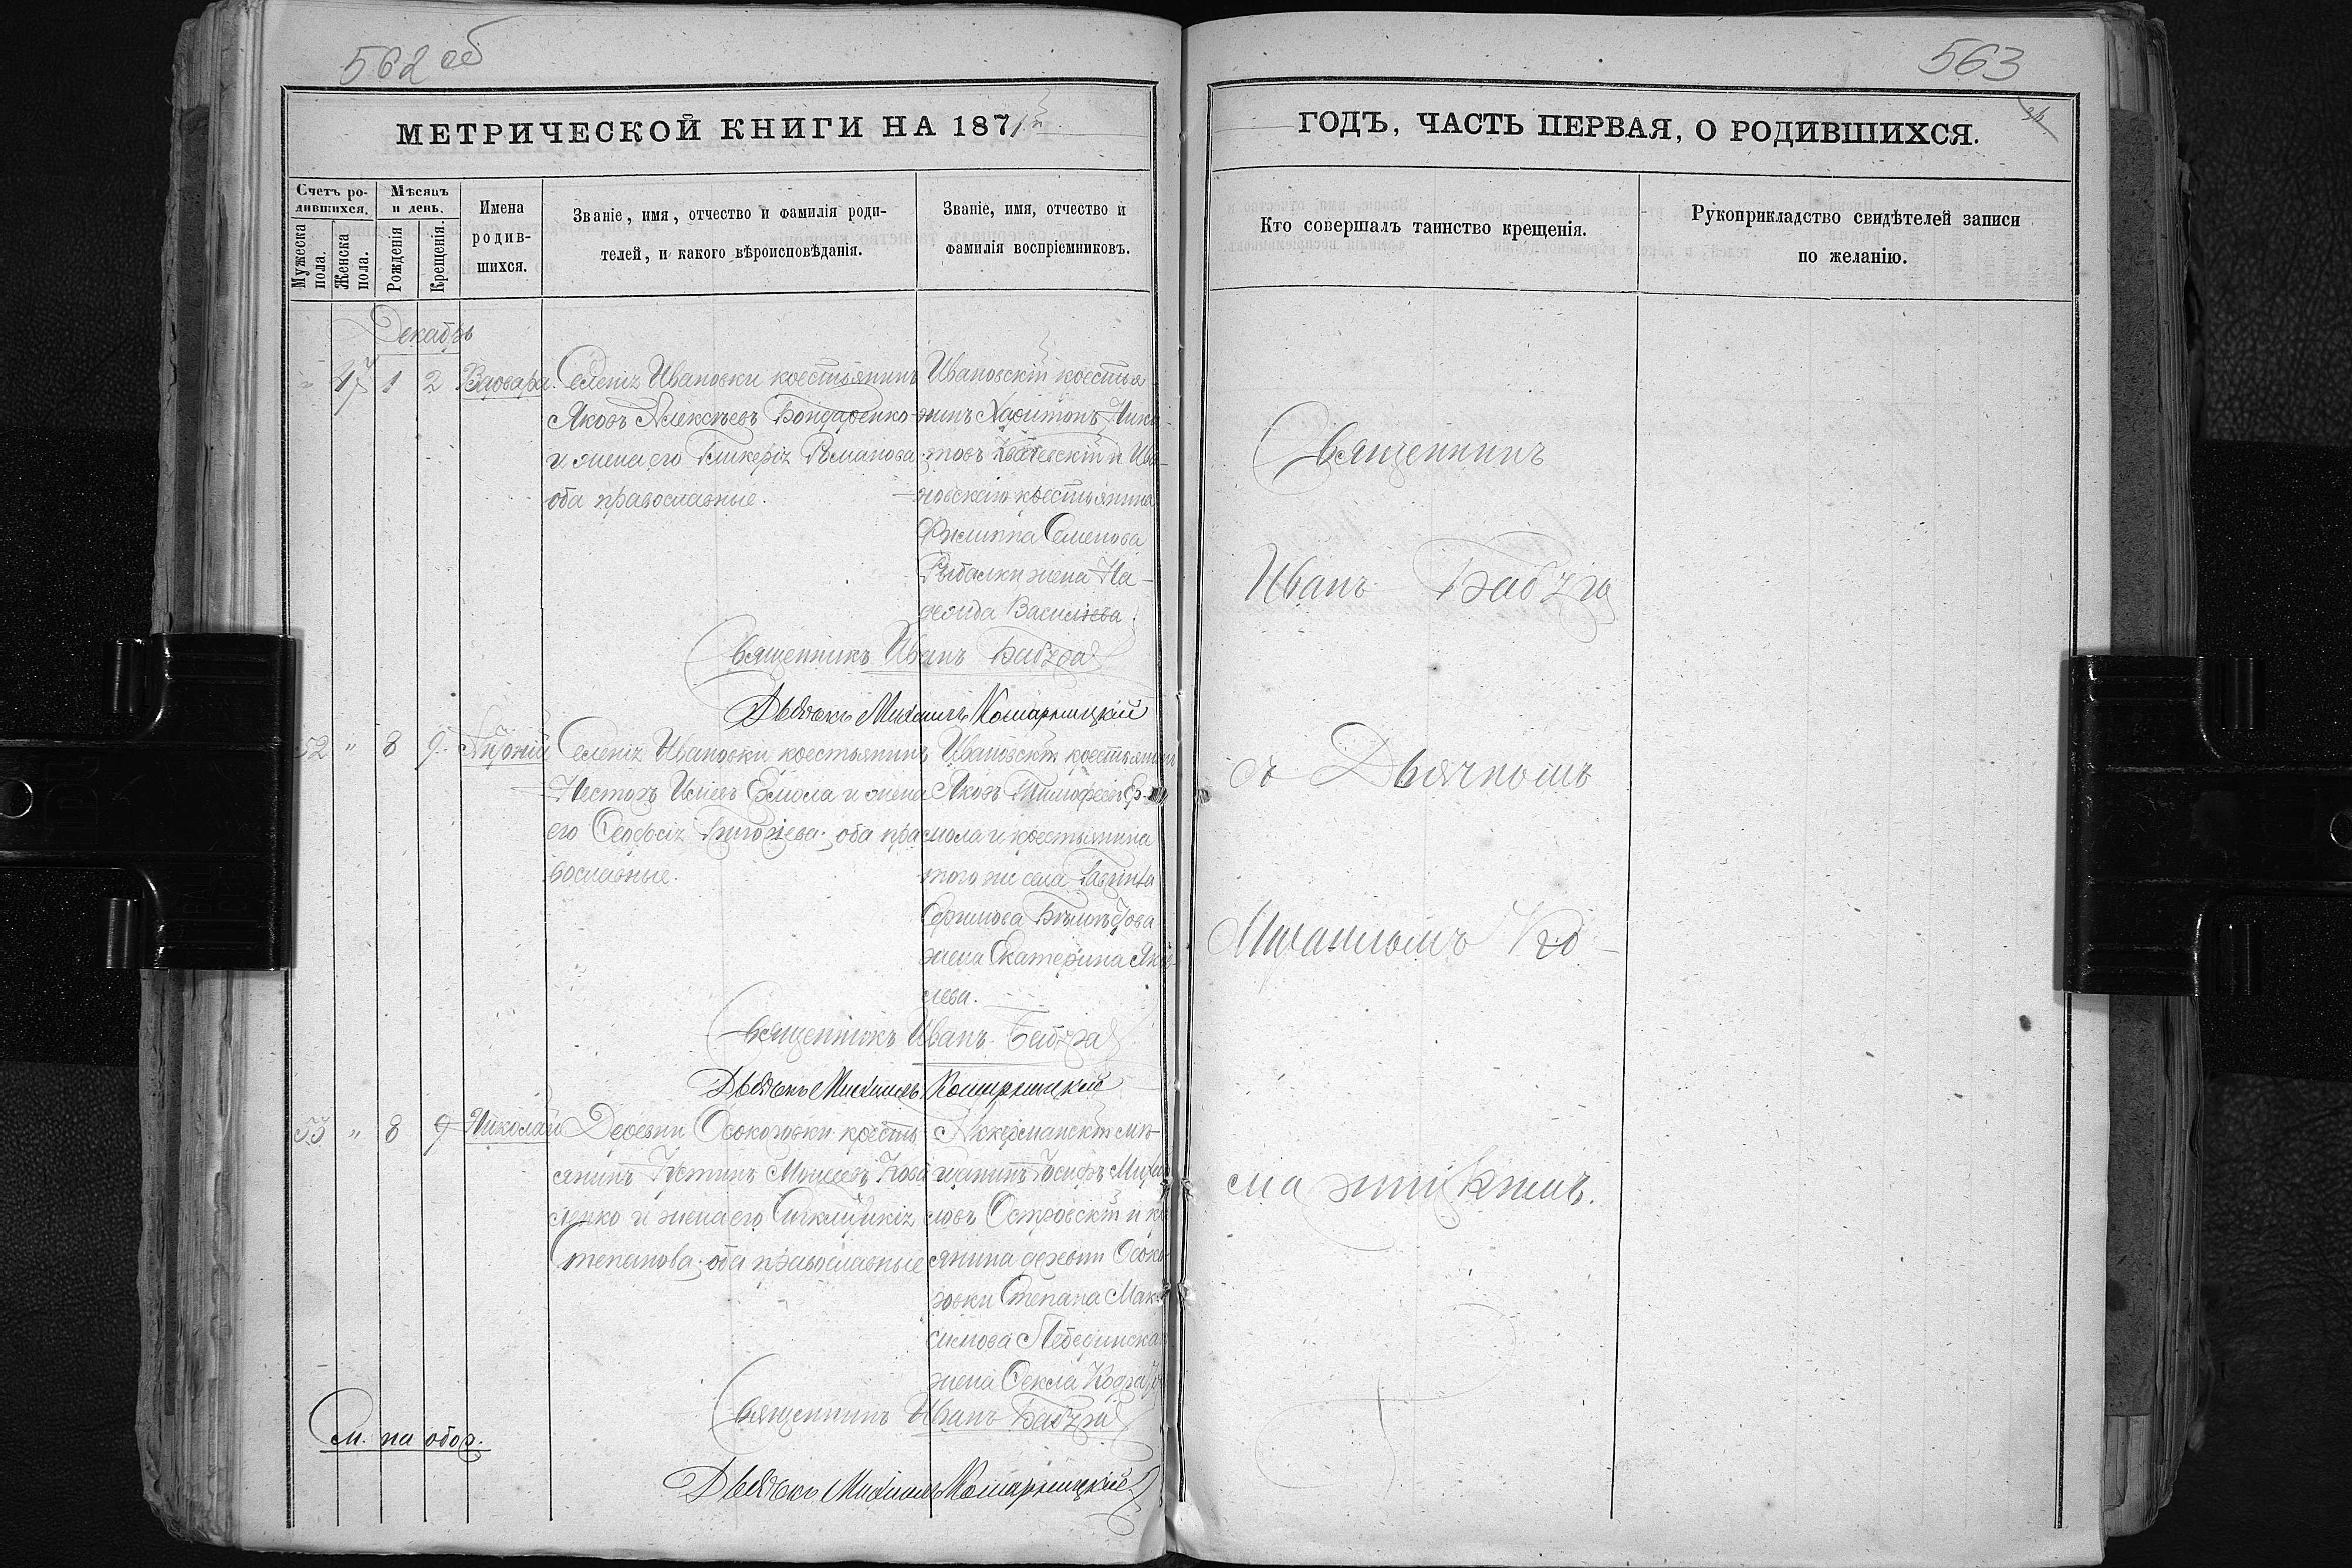 562 об
МЕТРИЧЕСКОЙ КНИГИ НА 1871й
Счетъ ро-
дившихся.
Мужеска
пола.
Женска
пола.
Мѣсяцъ
и день.
Рожденія
Крещенія.
Имена
родив-
шихся.
Званіе, имя, отчество и фамилія роди-
телей, и какого вѣроисповѣданія.
Званіе, имя, отчество и
фамилія воспріемниковъ.
Декабрь
" 47 1 2 Варвара.
Селенія Ивановки крестьянинъ
Яковъ Алексѣевъ Бондаренко
и жена его Гликерія Романова
оба православные.
Ивановскій крестья
нинъ Харитонъ
и Ива-
новскаго крестьянина
Филиппа Семенова
Рыбалки жена На-
дежда Василіева
Священникъ Иванъ Бабура
Дьячокъ Михаилъ Комарницкій
52 " 8 9
Селенія Ивановки крестьянинъ
Несторъ Ермола и жена
его Феодосія Григоріева оба пра
вославные.
Ивановскій крестьянинъ
Яковъ Тимофеевъ Ер-
мола и крестьянина
того же села
жена Екатерина Як
лева.
Священникъ Иванъ Бабура
Дьячокъ Михаилъ Комарницкій
53 " 8 9 Николай
Деревни Осокоровки кресть
янинъ Іустинъ Моисеевъ Кова
ленко и жена его Сигклитикія
Степанова оба православные
Аккерманскій мѣ-
щанинъ Іосифъ Михаи
ловъ Островскій и кр
янина деревни Осоко
ровки Степана Мак
симова Лебединска
жена Фекла
Священникъ Иванъ Бабура
См. на обор.
Дьячокъ Михаилъ Комарницкій
563
ГОДЪ, ЧАСТЬ ПЕРВАЯ, О РОДИВШИХСЯ.
Кто совершалъ таинство крещенія.
Рукоприкладство свидѣтелей записи
по желанію.
Священникъ
Иванъ Бабура
съ Дьячкомъ
Михаиломъ Ко-
марницкимъ.